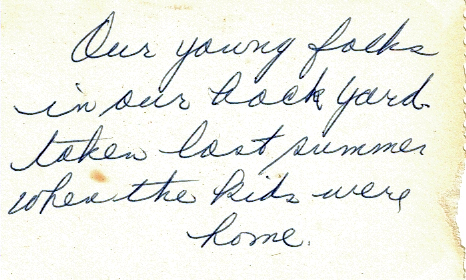 Our young folks
in our back yard
taken last summer
when the kids were
home.